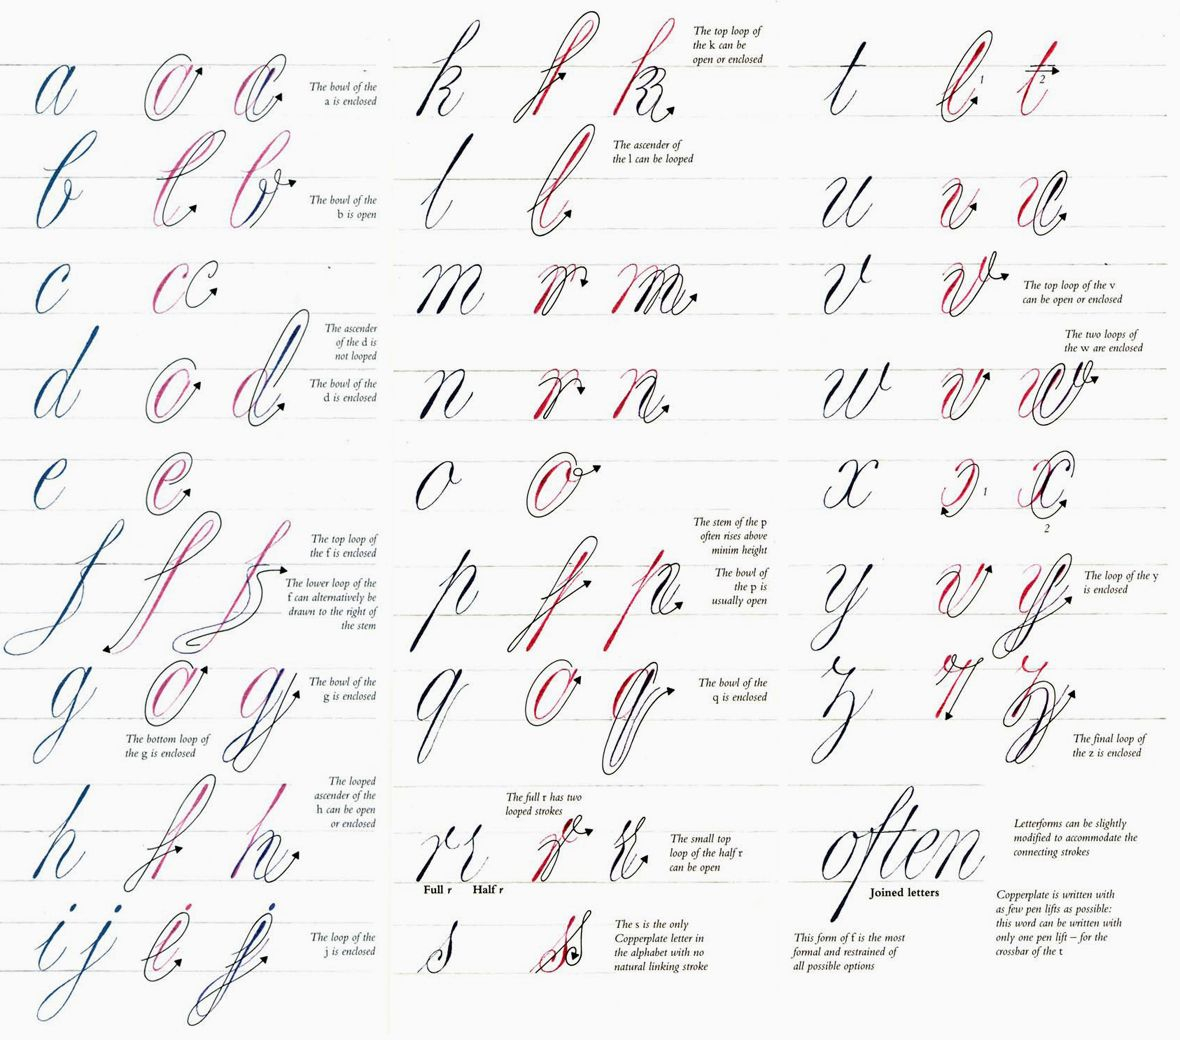 a a a
The bowl of the
a is enclosed
b b b
The bowl of the
b is open
c c c
The ascender
of the d is
not looped
d d d
The bowl of the
d is enclosed
e e
f f f
The top loop of
the f is enclosed
The lower loop of the
f can alternatively be
drawn to the right of
the stem
g g g
The bowl of the
g is enclosed
The bottom loop of
the g is enclosed
h h h
The looped
ascender of the
h can be open
or enclosed
i j i j
The loop of the
j is enclosed
k k k
The top loop of
the k can be
open or enclosed
l l
The ascender of
the l can be looped
m m m
n n n
o o
The stem of the p
often rises above
minim height
p p p
The bowl of
the p is
usually open
q q q
The bowl of the
q is enclosed
The full r has two
looped strokes
r r r r
Full r Half r
The small top
loop of the half r
can be open
s s
The s is the only
Copperplate letter in
the alphabet with no
natural linking stroke
t t 1 t 2
u u u
v v
The top loop of the v
can be open or enclosed
The two loops of
the w are enclosed
w w w
x x 1 x 2
y y y
The loop of the y
is enclosed
z z z
The final loop of
the z is enclosed
often
Joined letters
Letterforms can be slightly
modified to accommodate the
connecting strokes
This form of f is the most
formal and restrained of
all possible options
Copperplate is written with
as few pen lifts as possible:
this word can be written with
only one pen lift – for the
crossbar of the t